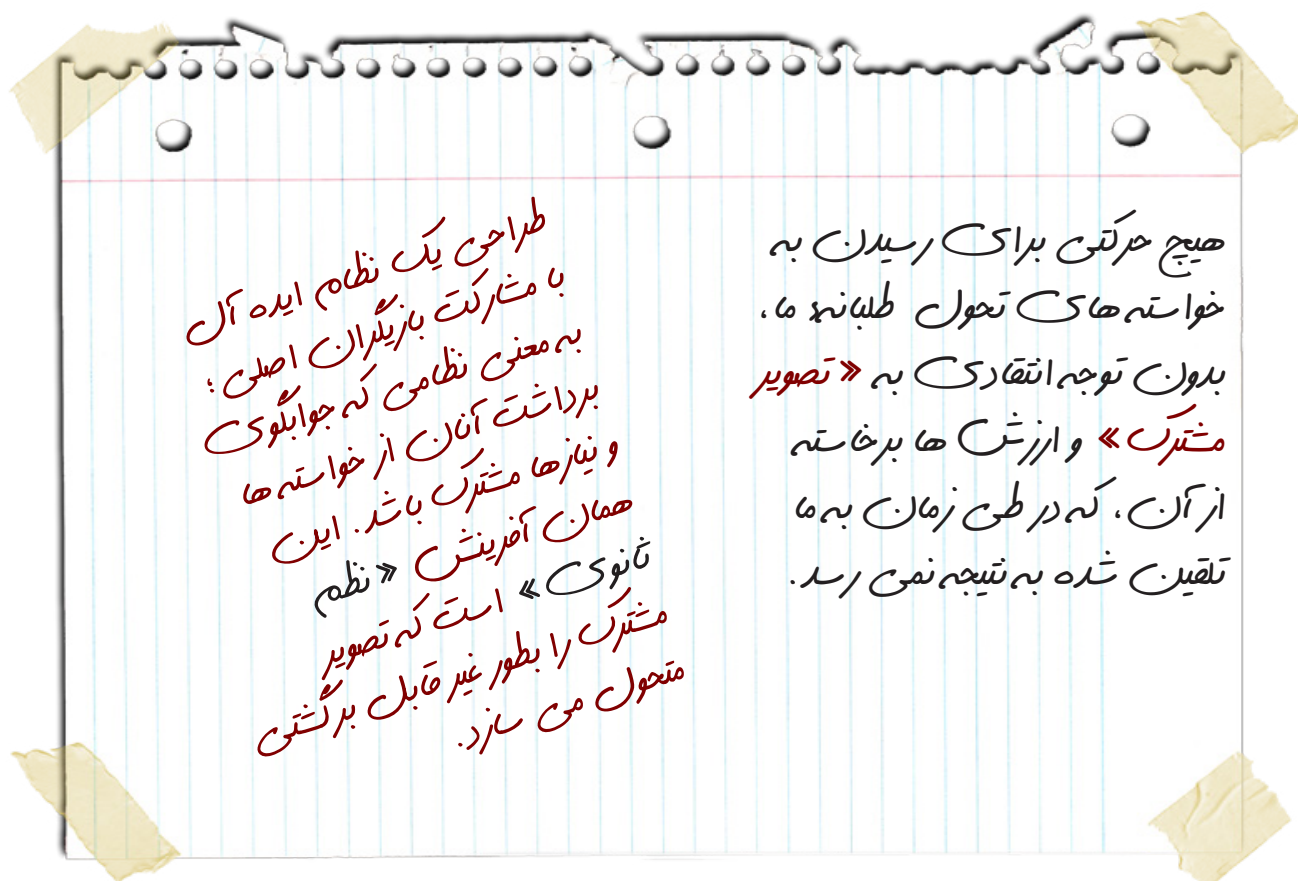 هیچ حرکتی برای رسیدن به
خواسته های تحول طلبانهٔ ما،
بدون توجه انتقادی به «تصویر
مشترک» و ارزش ها برخاسته
از آن، که در طی زمان به ما
تلقین شده به نتیجه نمی رسد.
طراحی یک نظام ایده آل
با مشارکت بازیگران اصلی؛
به معنی نظامی که جوابگوی
برداشت آنان از خواسته ها
و نیازها مشترک باشد. این
همان آفرینش «نظم
ثانوی» است که تصویر
مشترک را بطور غیر قابل برگشتی
متحول می سازد.